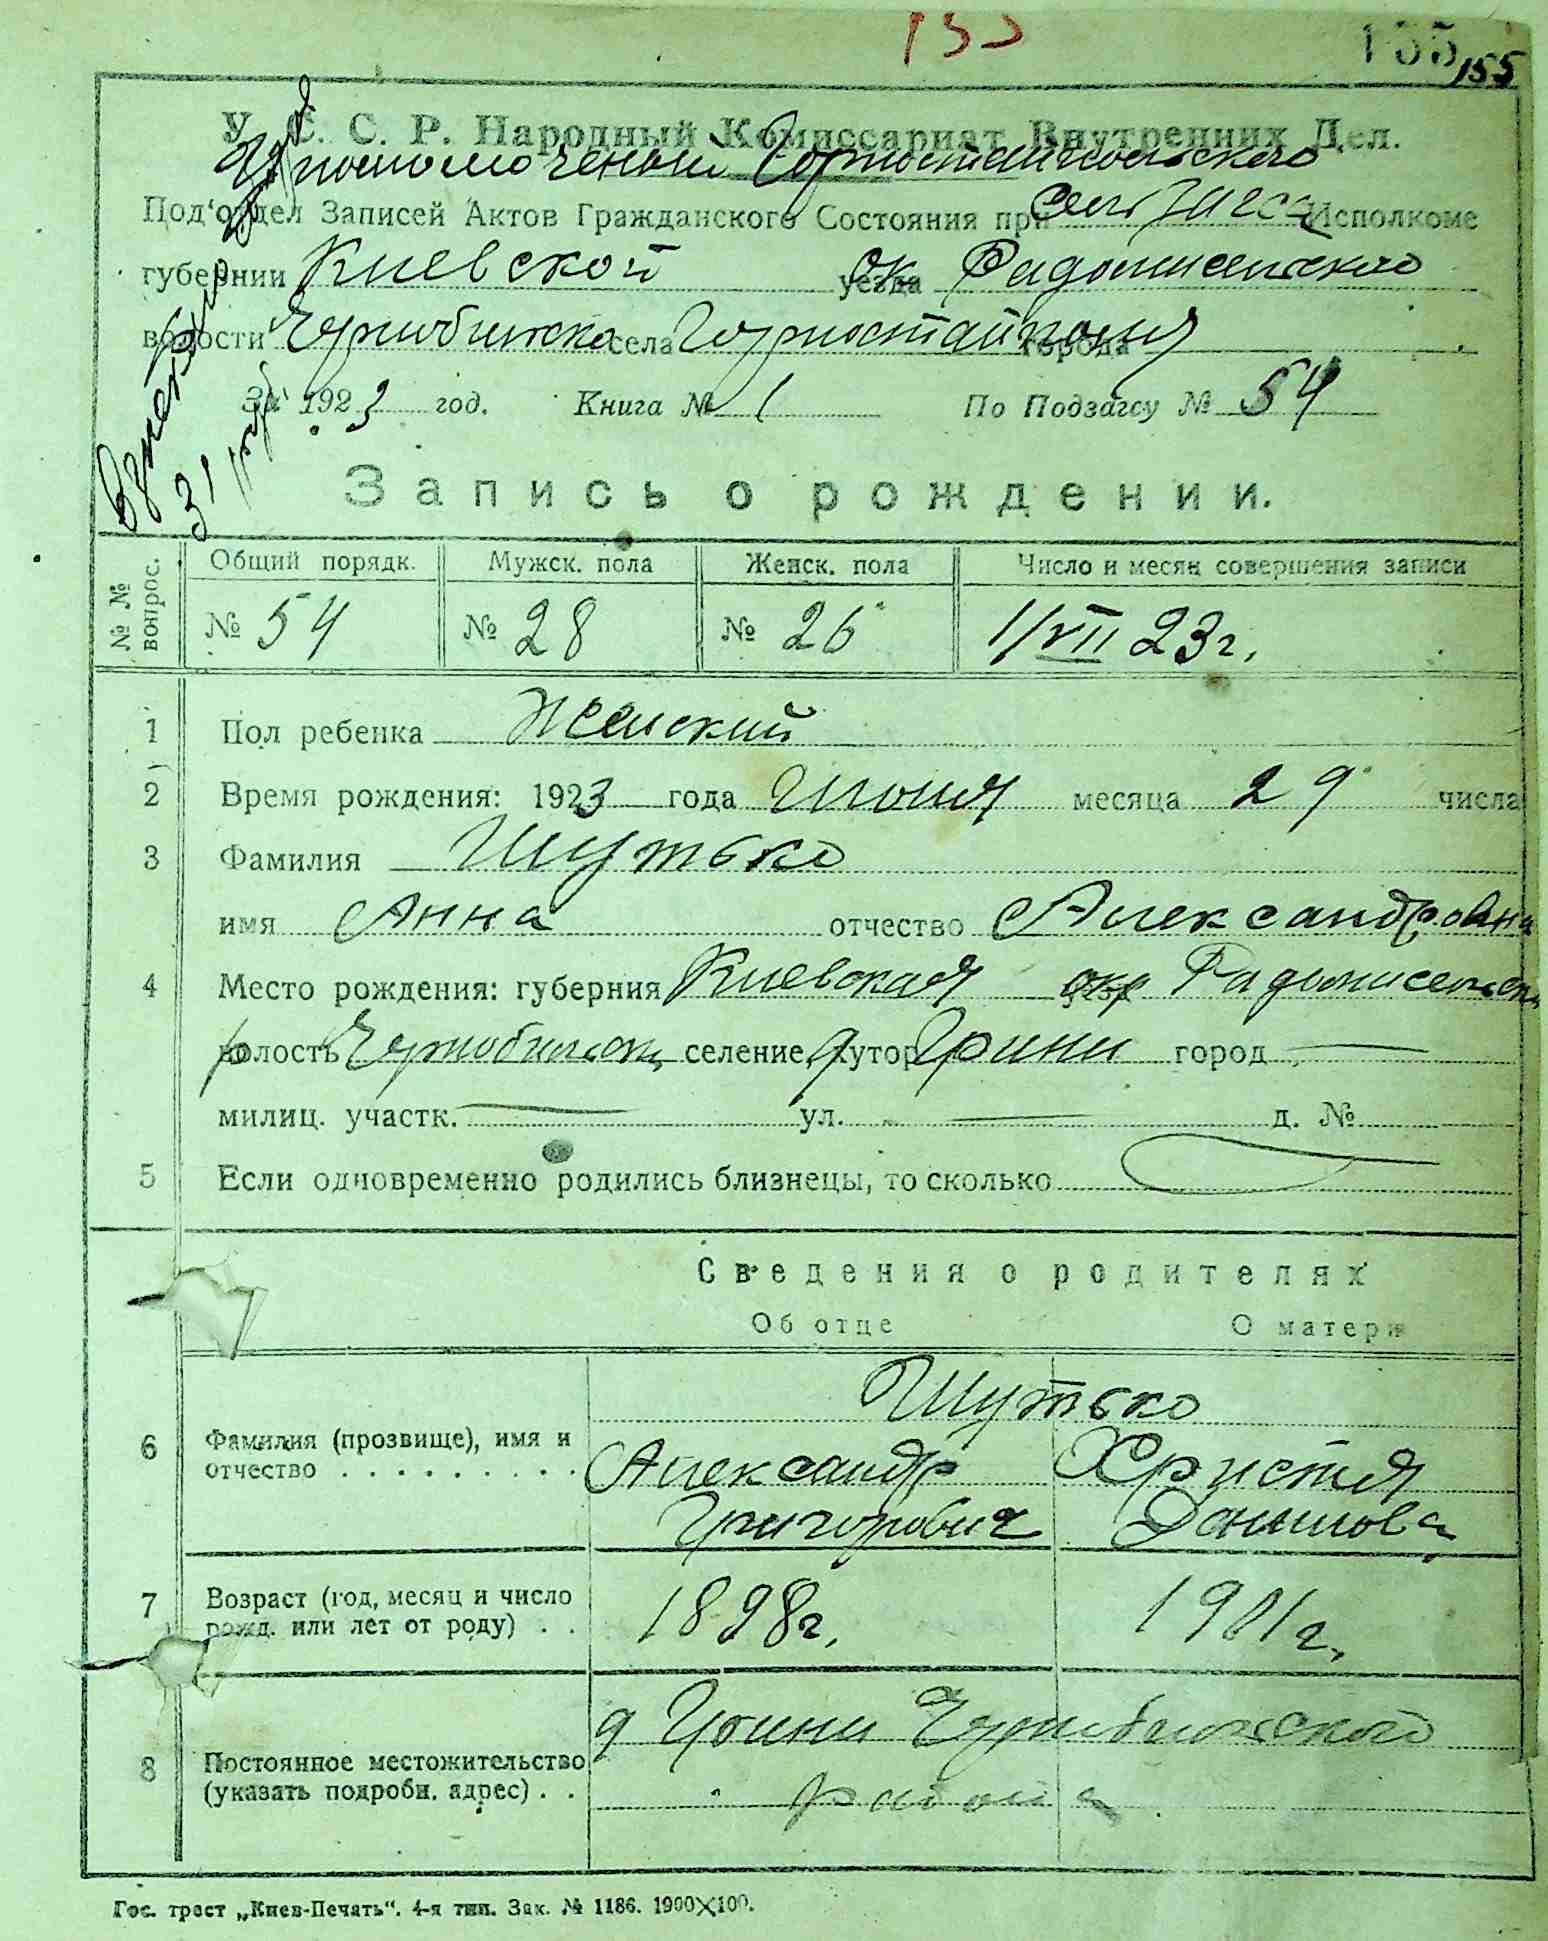 155
155
У. С. С. Р. Народный Комиссариат Внутренних Дел.
Уполномоченый Горностайпольского
Под'отдел Записей Актов Гражданского Состояния при Сельзагса Исполкоме
губернии Киевской ок уезда Радомисельского
волости Чернобильско села Горностайполя города
За 1923 год. Книга № 1 По Подзагсу № 54
31
Запись о рождении.
№ № вопрос. Общий порядк. Мужск. пола Женск. пола Число и месяц совершения записи
№ 54 № 28 № 26 1/VII 23г.
1 Пол ребенка Женский
2 Время рождения: 1923 года Июня месяца 29 числа
3 Фамилия Шутько
имя Анна отчество Александровна
4 Место рождения: губерния Киевская окр Радомисельск
р волость Чернобильск селение, хутор д Грини город —
милиц. участк. — ул. — д. №
5 Если одновременно родились близнецы, то сколько
Сведения о родителях
Об отце О матери
Шутько
6 Фамилия (прозвище), имя и Александр Христя
отчество Григорович Данилова
7 Возраст (год, месяц и число 1898г. 1901г.
рожд. или лет от роду)
д Грини Чернобильского
8 Постоянное местожительство
(указать подробн. адрес) района
Гос. трест „Киев-Печать“. 4-я тип. Зак. № 1186. 1900×100.